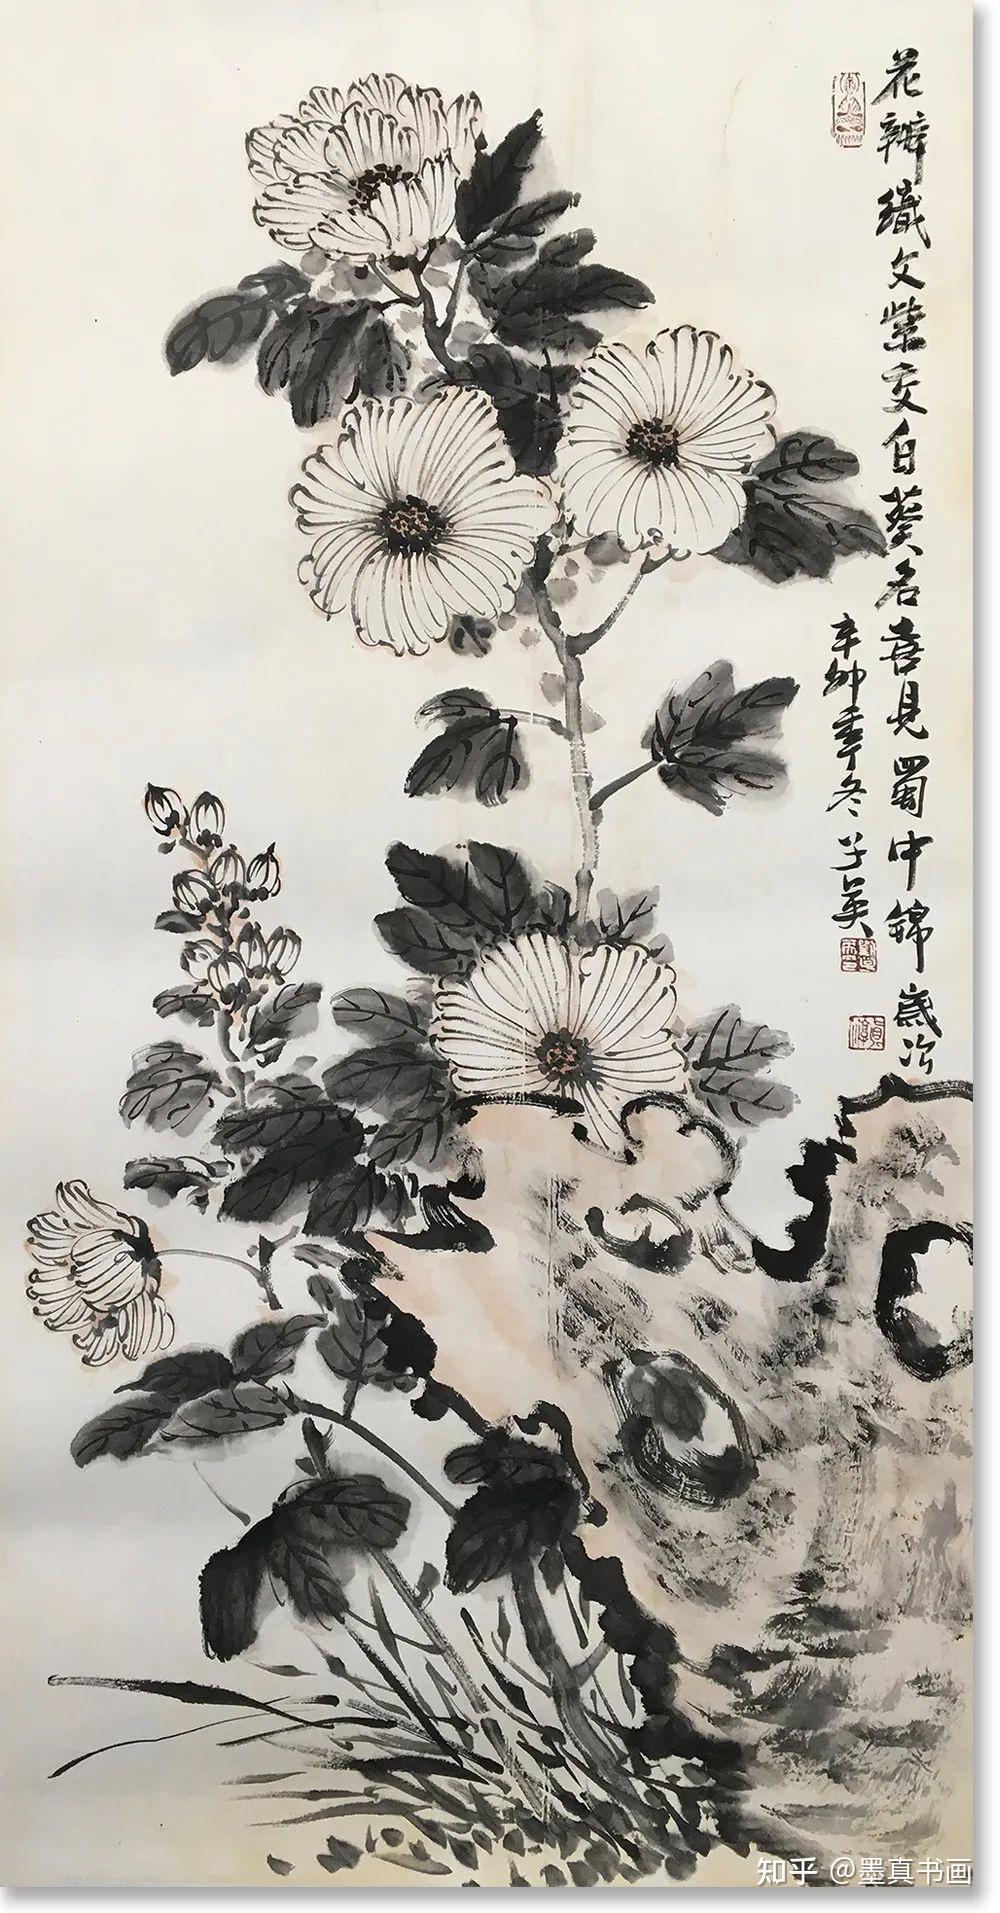 花瓣織文紫交白葵名喜見蜀中錦
辛卯季冬子英
知乎 @墨真书画